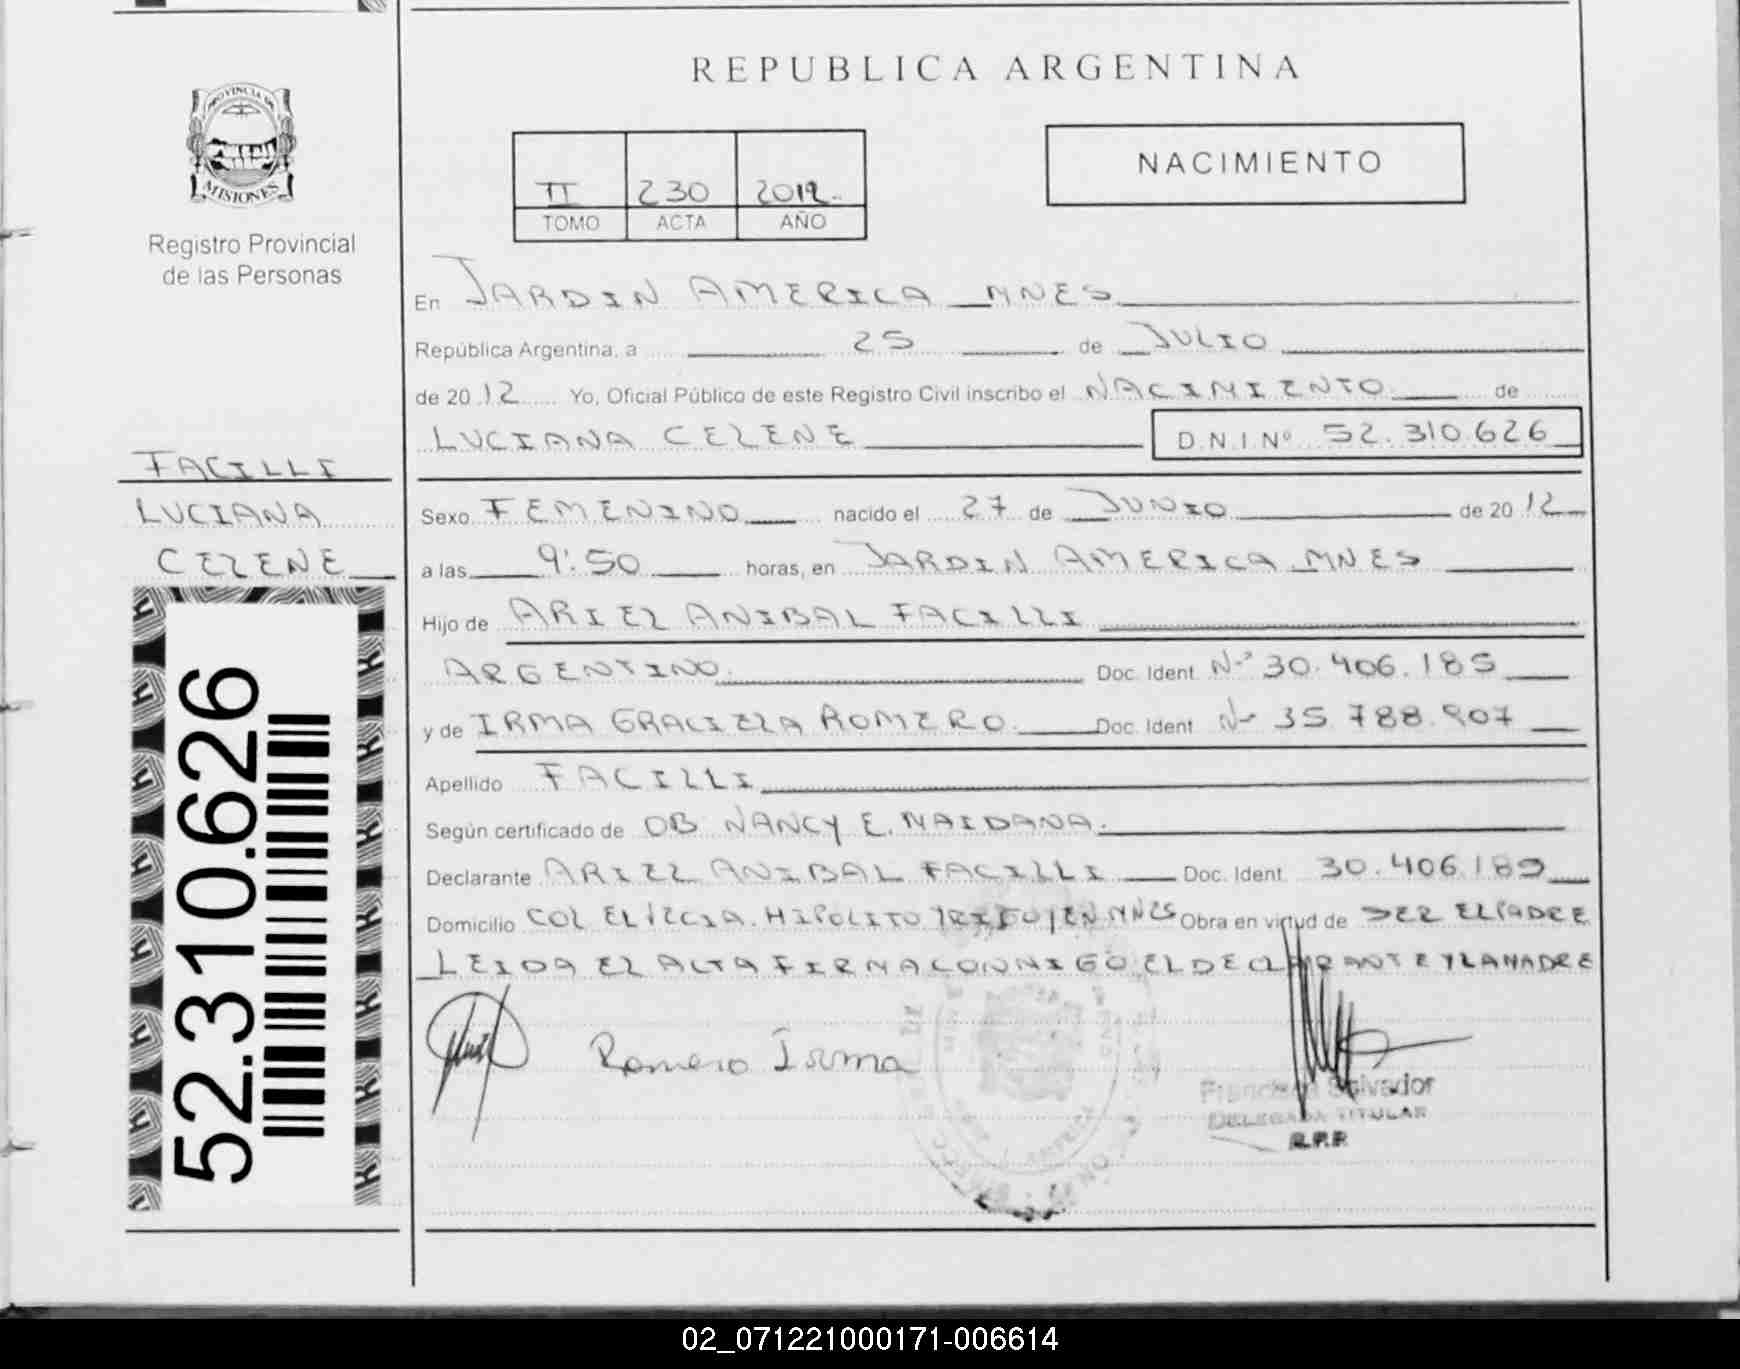 REPUBLICA ARGENTINA
PROVINCIA DE
MISIONES
Registro Provincial
de las Personas
NACIMIENTO
II 230 2012
TOMO ACTA AÑO
En JARDIN AMERICA MNES
República Argentina, a 25 de JULIO
de 2012 Yo, Oficial Público de este Registro Civil inscribo el NACIMIENTO de
LUCIANA CELENE D.N.I. Nº 52.310.626
FACILLI
LUCIANA
CELENE
52.310.626
Sexo FEMENINO nacido el 27 de JUNIO de 2012
a las 9:50 horas, en JARDIN AMERICA MNES
Hijo de ARIEL ANIBAL FACILLI
ARGENTINO Doc. Ident. Nº 30.406.185
y de IRMA GRACIELA ROMERO. Doc. Ident. Nº 35.788.907
Apellido FACILLI
Según certificado de OB NANCY E. MAIDANA.
Declarante ARIEL ANIBAL FACILLI Doc. Ident. 30.406.185
Domicilio COL EL HIPOLITO IRIGOYEN MNES Obra en virtud de SER EL PADRE
LEIDA EL ACTA FIRMA CONMIGO EL DECLARANTE Y LA MADRE
Romero Irma
Salvador
DELEGADA TITULAR
R.P.P.
02_071221000171-006614